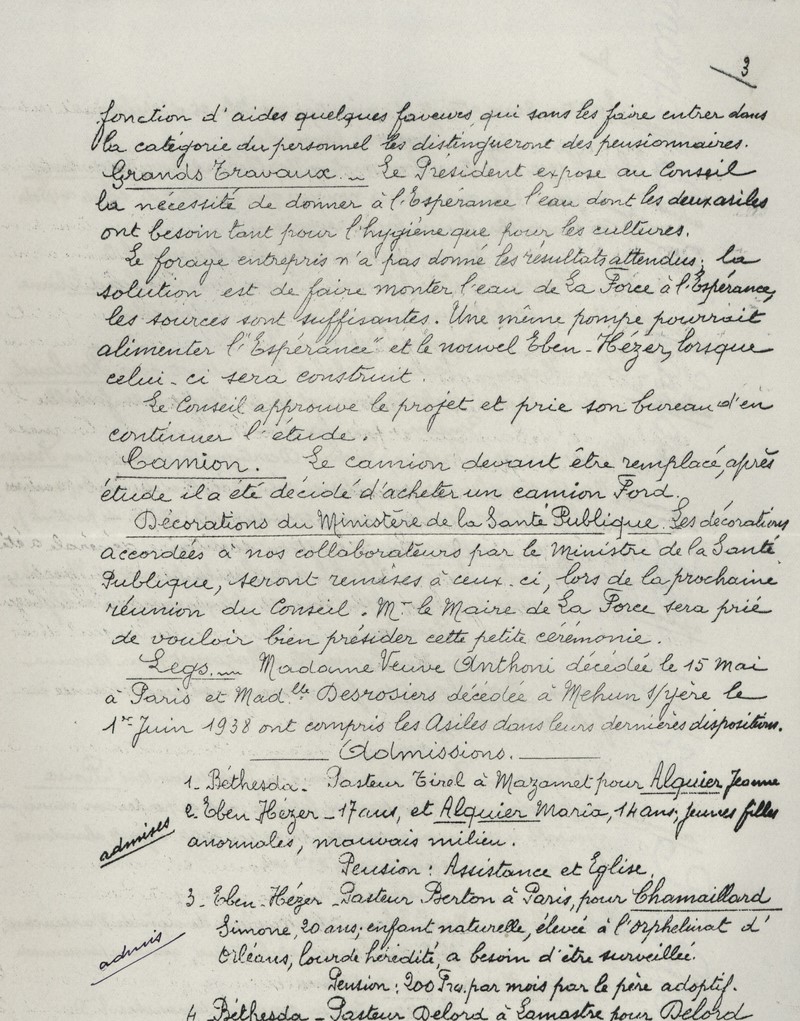 3
fonction d'aides quelques faveurs, qui sans les faire entrer dans
la catégorie du personnel les distingueront des pensionnaires.
Grands Travaux. _ Le Président expose au Conseil
la nécessité de donner à l'Espérance l'eau dont les deux asiles
ont besoin tant pour l'hygiène que pour les cultures.
Le forage entrepris n'a pas donné les résultats attendus; la
solution est de faire monter l'eau de La Force à l'Espérance,
les sources sont suffisantes. Une même pompe pourrait
alimenter l'"Espérance" et le nouvel Eben-Hézer, lorsque
celui-ci sera construit.
Le Conseil approuve le projet et prie son bureau d'en
continuer l'étude.
Camion. Le camion devant être remplacé, après
étude il a été décidé d'acheter un camion Ford.
Décorations du Ministère de la Santé Publique. Les décorations
accordées à nos collaborateurs par le Ministre de la Santé
Publique, seront remises à ceux-ci, lors de la prochaine
réunion du Conseil. Mr le Maire de La Force sera prié
de vouloir bien présider cette petite cérémonie.
Legs. _ Madame Veuve Anthoni décédée le 15 Mai
à Paris et Mad.lle Desrosiers décédée à Mehun s/Yère le
1er Juin 1938 ont compris les Asiles dans leurs dernières dispositions.
Admissions.
1- Béthesda. Pasteur Tirel à Mazamet pour Alquier Jeanne
2. Eben Hézer - 17 ans, et Alquier Maria, 14 ans; jeunes filles
admises anormales, mauvais milieu.
Pension: Assistance et Eglise.
3- Eben-Hézer - Pasteur Berton à Paris, pour Chamaillard
Simone, 20 ans; enfant naturelle, élevée à l'orphelinat d'
admis Orléans, lourde hérédité, a besoin d'être surveillée.
Pension: 200 Frs. par mois par le père adoptif.
4 Béthesda - Pasteur Delord à Lamastre pour Delord